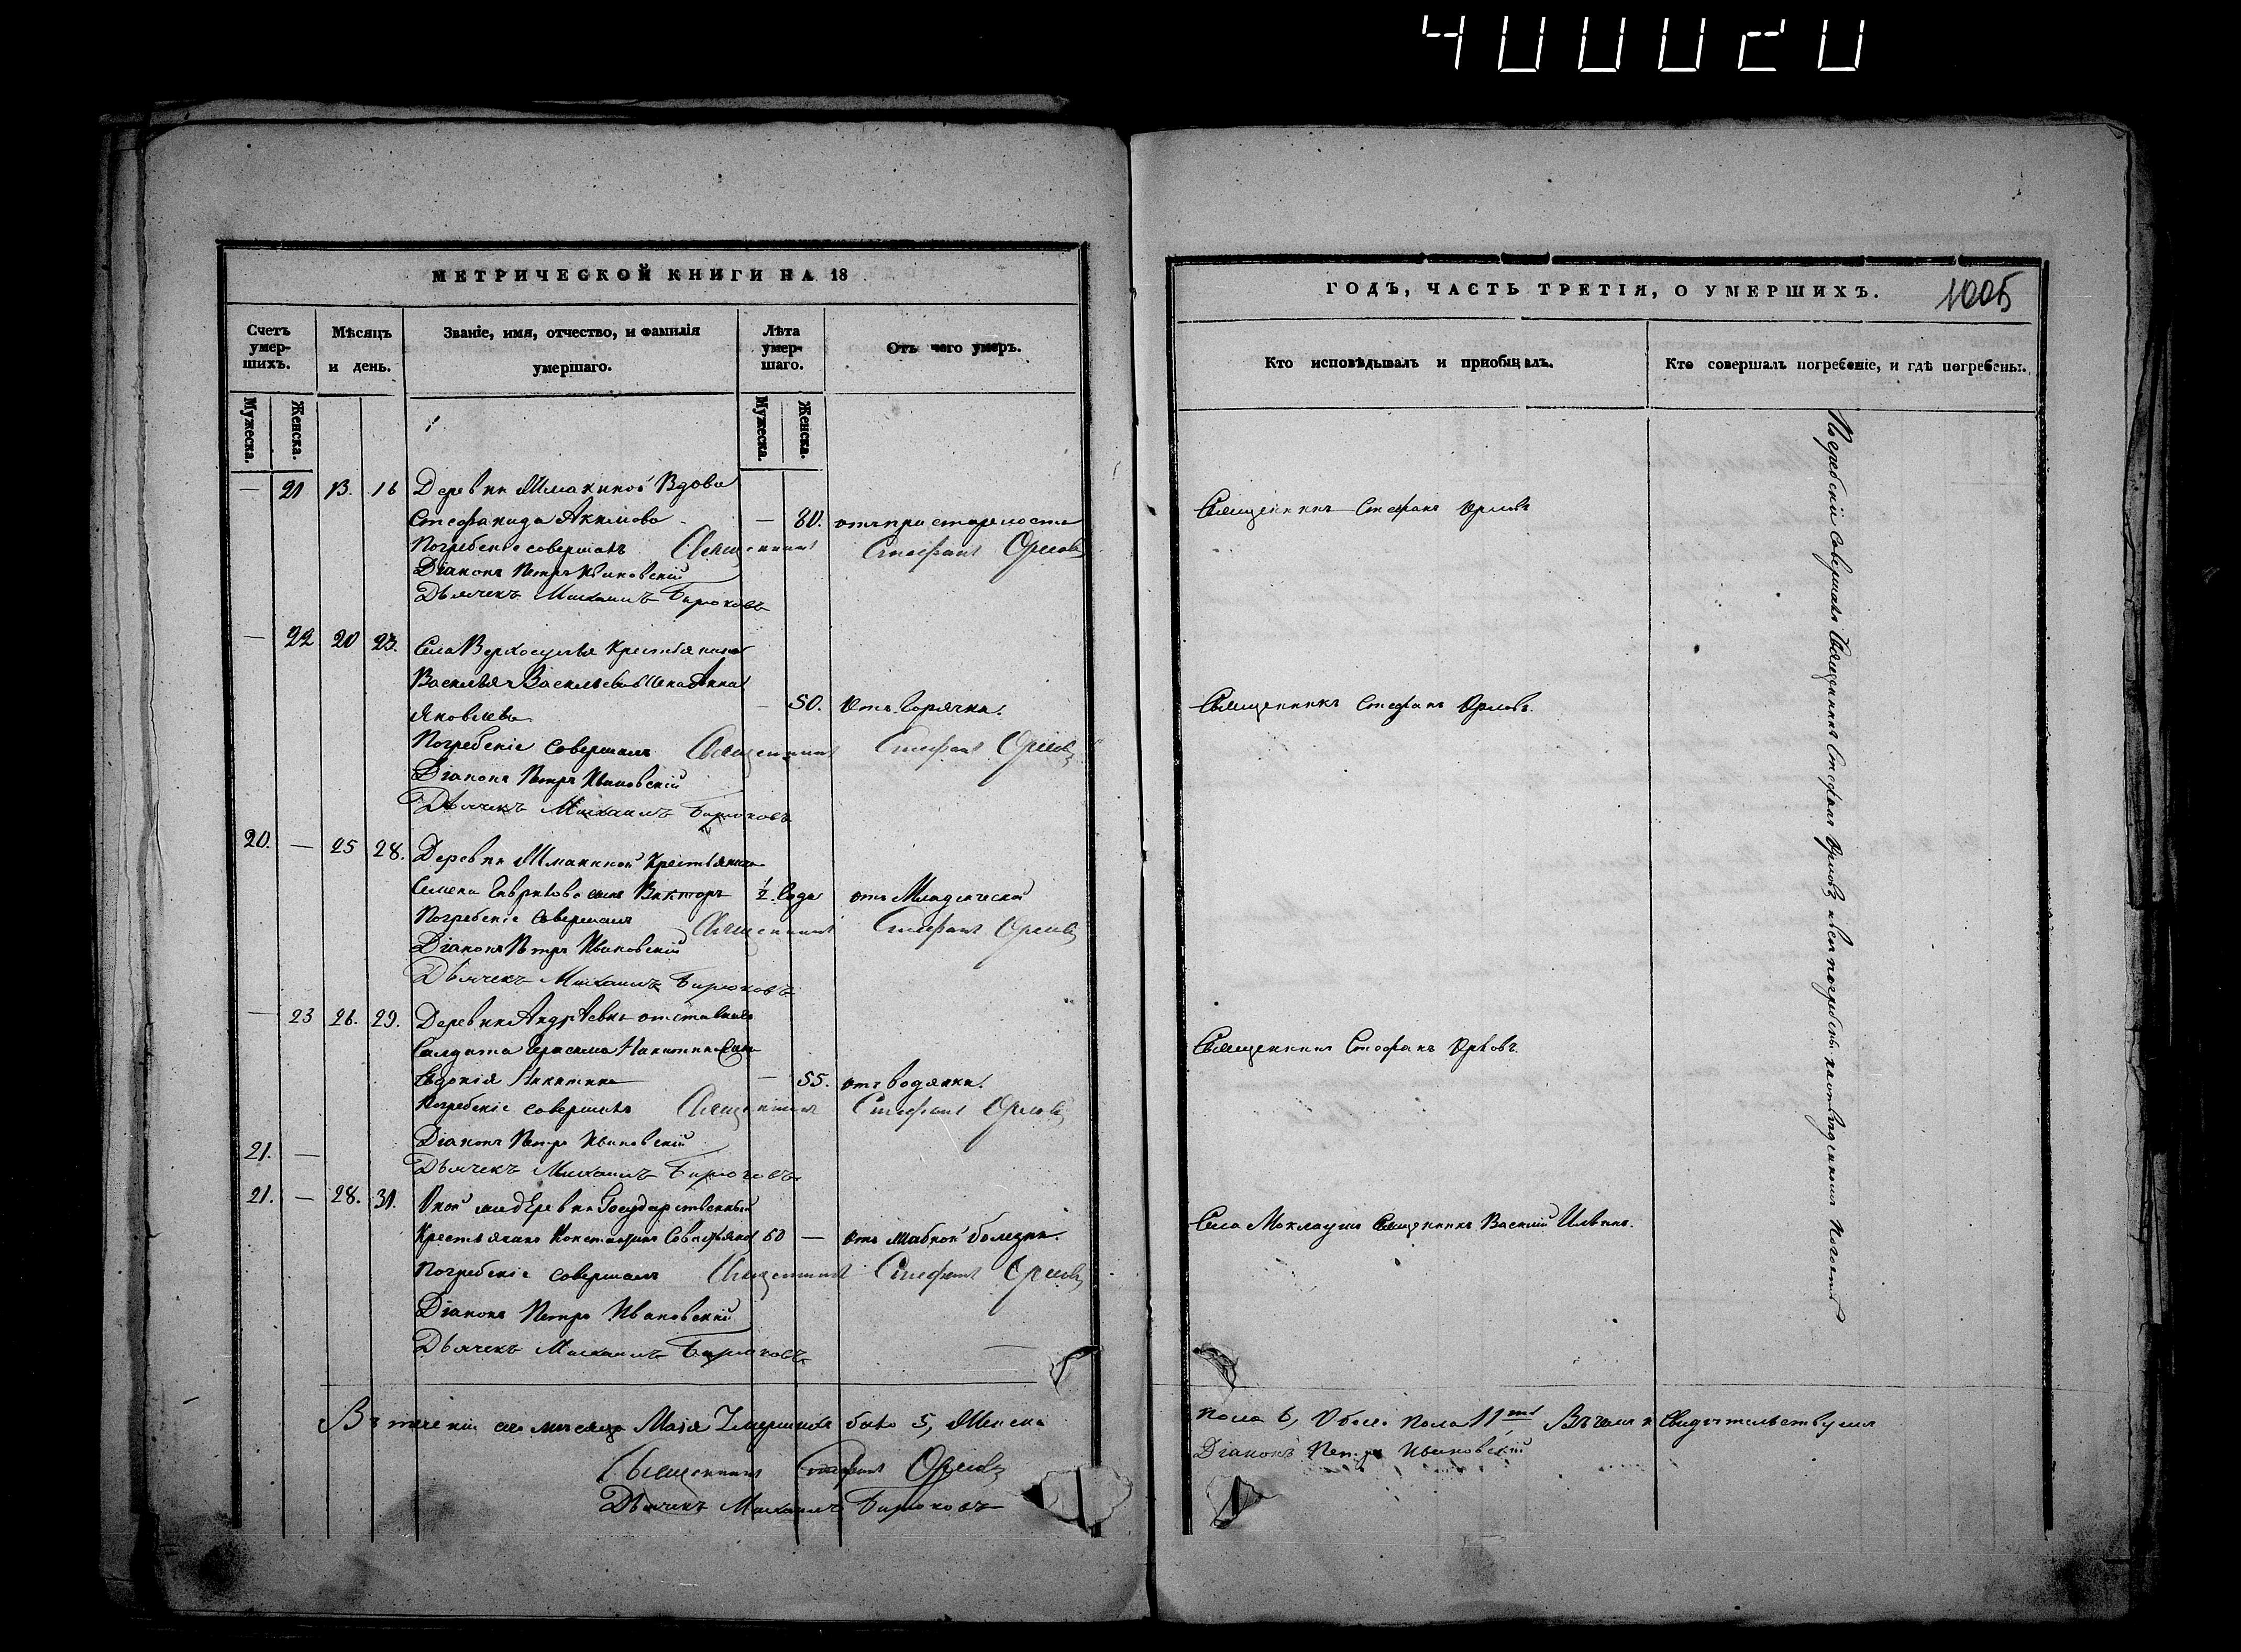 400020
МЕТРИЧЕСКОЙ КНИГИ НА 18
Счетъ умер-шихъ.
Мѣсяцъ и день.
Званіе, имя, отчество, и фамилія умершаго.
Лѣта умер-шаго.
Отъ чего умеръ.
Мужеска.
Женска.
Мужеска.
Женска.
— 21 13. 16 Деревни Шмакиной Вдова
Стефанида Акимова — 80. отъ престарелости
Погребеніе совершалъ Священникъ Стефанъ Орловъ
Діаконъ Петръ Ивановскій
Дьячекъ Михаилъ Бирюковъ
— 22 20 23. Села Верхосулья Крестьянина
Василья Васильева жена Анна
Яковлева — 50. Отъ Горячки.
Погребеніе совершалъ Священникъ Стефанъ Орловъ
Діаконъ Петръ Ивановскій
Дьячекъ Михаилъ Бирюковъ
20. — 25 28. Деревни Шмакиной Крестьянина
Семена Гаврилова сынъ Викторъ ½ Года отъ Младенческой
Погребеніе совершалъ Священникъ Стефанъ Орловъ
Діаконъ Петръ Ивановскій
Дьячекъ Михаилъ Бирюковъ
— 23 26. 29. Деревни Андреевки отставнаго
Солдата Герасима Никитина
Евдокія Никитина — 55. отъ водянки.
Погребеніе совершалъ Священникъ Стефанъ Орловъ
Діаконъ Петръ Ивановскій
21. —
Дьячекъ Михаилъ Бирюковъ
21. — 28. 31. Оной же деревни Государственный
Крестьянинъ Константинъ 50 — Отъ болезни.
Погребеніе совершалъ Священникъ Стефанъ Орловъ
Діаконъ Петръ Ивановскій
Дьячекъ Михаилъ Бирюковъ
Въ теченіи сего месяца Маія Умершихъ было 5, Женска
Священникъ Стефанъ Орловъ
Дьячекъ Михаилъ Бирюковъ
ГОДЪ, ЧАСТЬ ТРЕТІЯ, О УМЕРШИХЪ.
1005
Кто исповѣдывалъ и пріобщалъ.
Кто совершалъ погребеніе, и гдѣ погребены.
Священникъ Стефанъ Орловъ
Священникъ Стефанъ Орловъ.
Священникъ Стефанъ Орловъ.
Села Священникъ Василій Ильинъ.
Погребеніи совершалъ Священникъ Стефанъ Орловъ, и все погребены на отведенномъ погосте
пола 6, Обоего пола 11 ть Въ чемъ и Свидѣтельствуемъ
Діаконъ Петръ Ивановскій